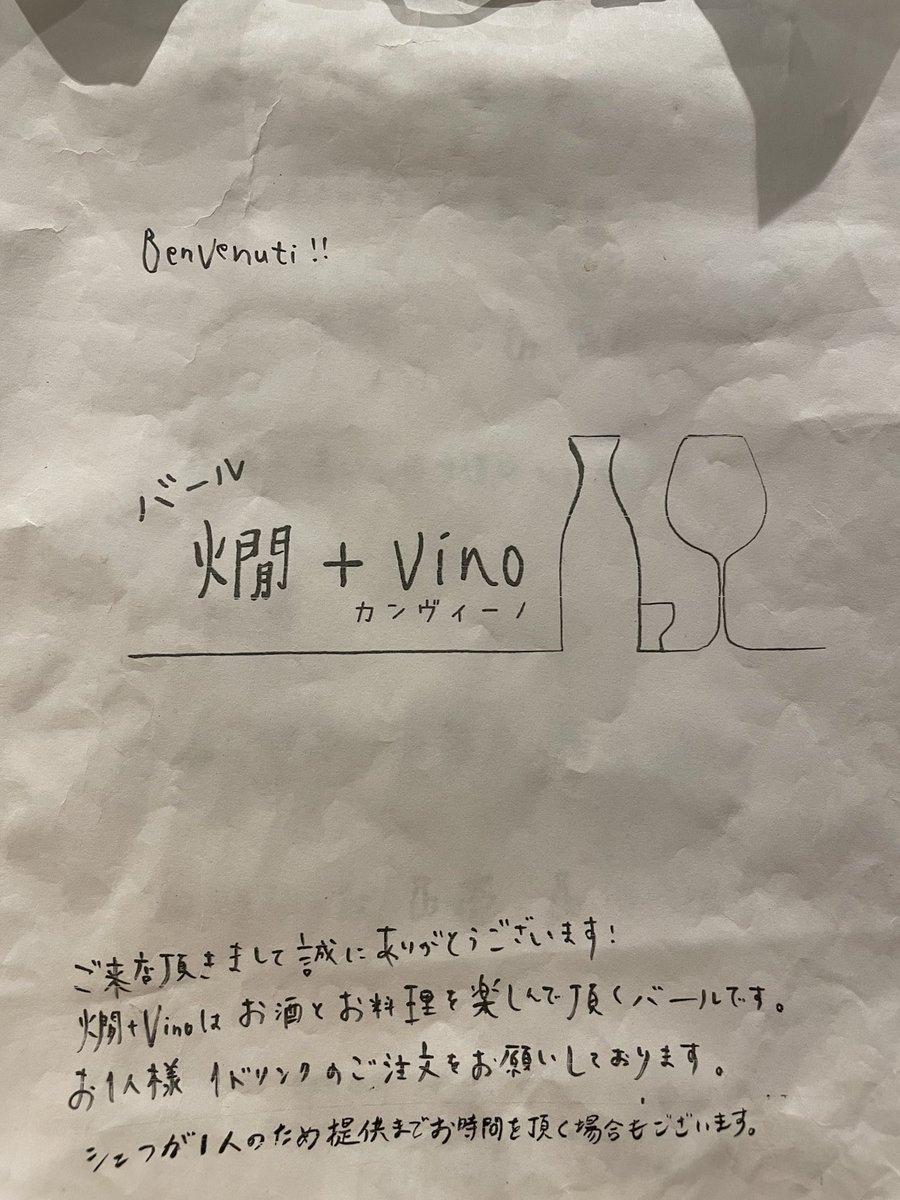 Benvenuti!!
バール
燗 + Vino
カンヴィーノ
ご来店頂きまして誠にありがとうございます!
燗+Vinoは お酒とお料理を楽しんで頂くバールです。
お1人様 1ドリンクのご注文をお願いしております。
シェフが1人のため提供までお時間を頂く場合もございます。